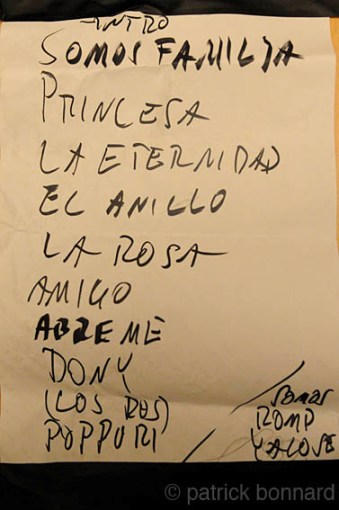 INTRO
SOMOS FAMILIA
PRINCESA
LA ETERNIDAD
EL ANILLO
LA ROSA
AMIGO
ABREME
DONY
(LOS DOS)
POPPURI
SOMOS
ROMP
YALOSE
© patrick bonnard